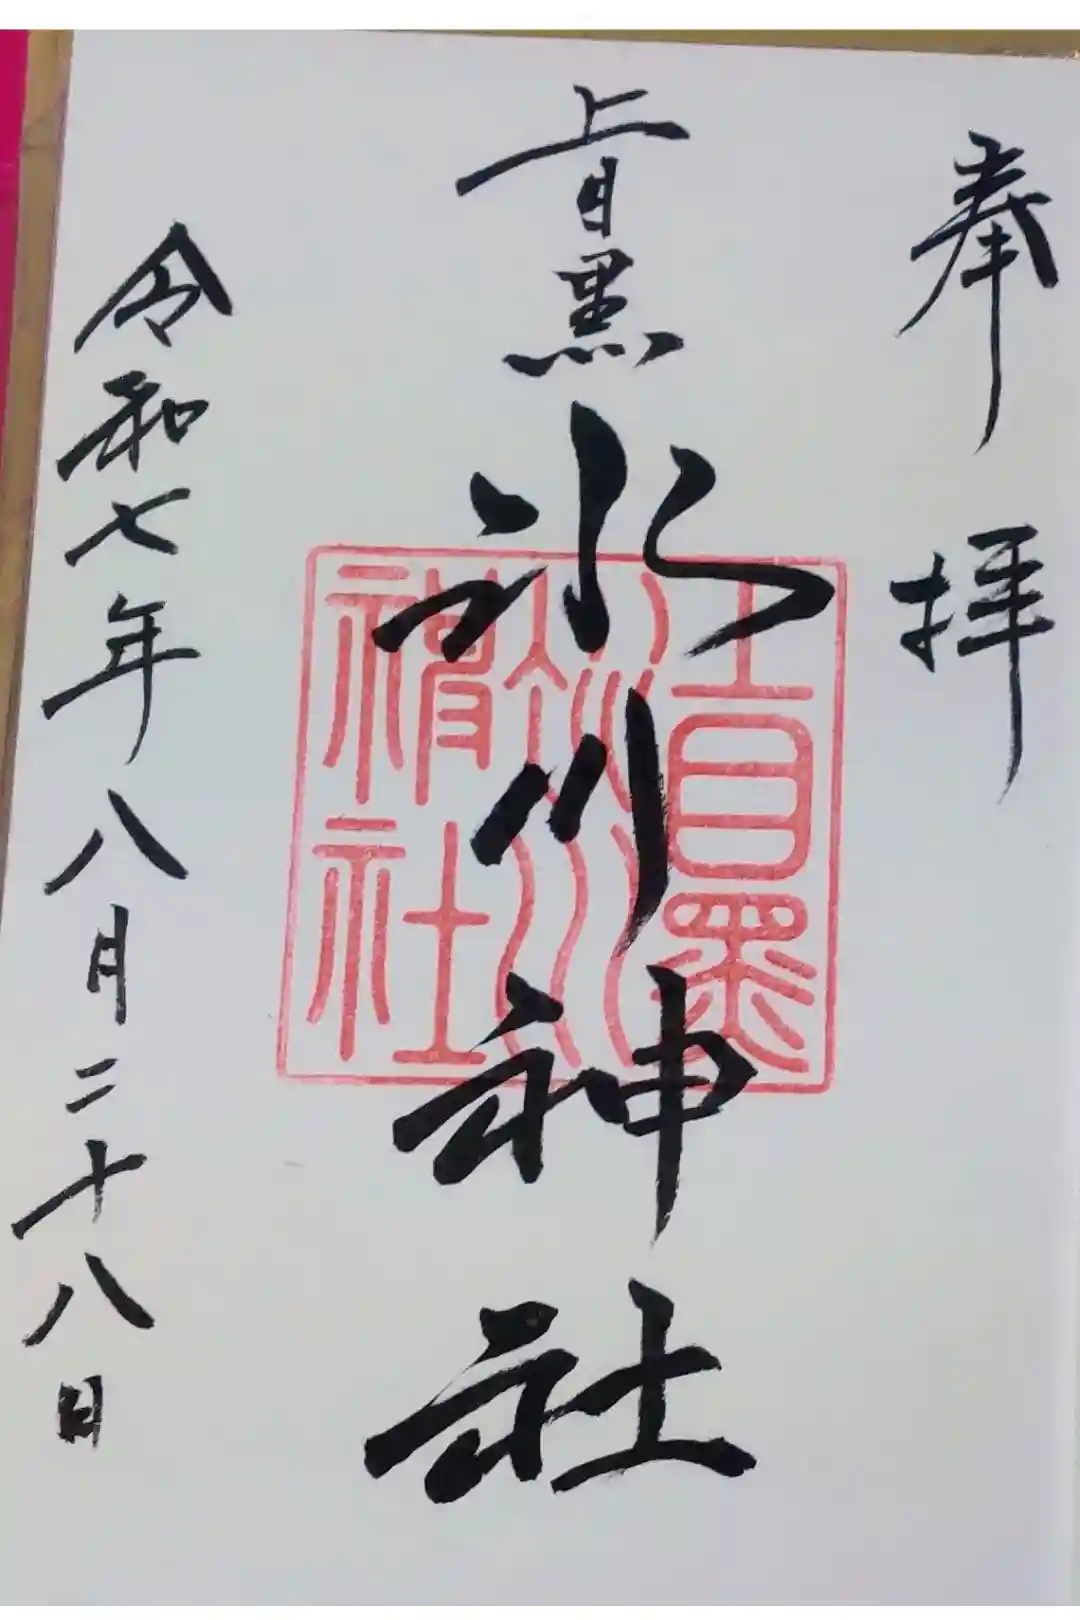 奉拝
上目黒
氷川神社
令和七年八月二十八日
上目黒
氷川
神社